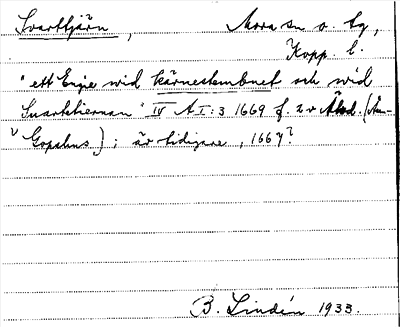 Svarttjärn, Mora sn o. tg,
Kopp. l.
"ett Enge wid kärnestembnet och wid
Suarttiernan" IV A I:3 1669 f. 2 v
v Gopshus); är tidigare, 1667?
B. Lindén 1933.